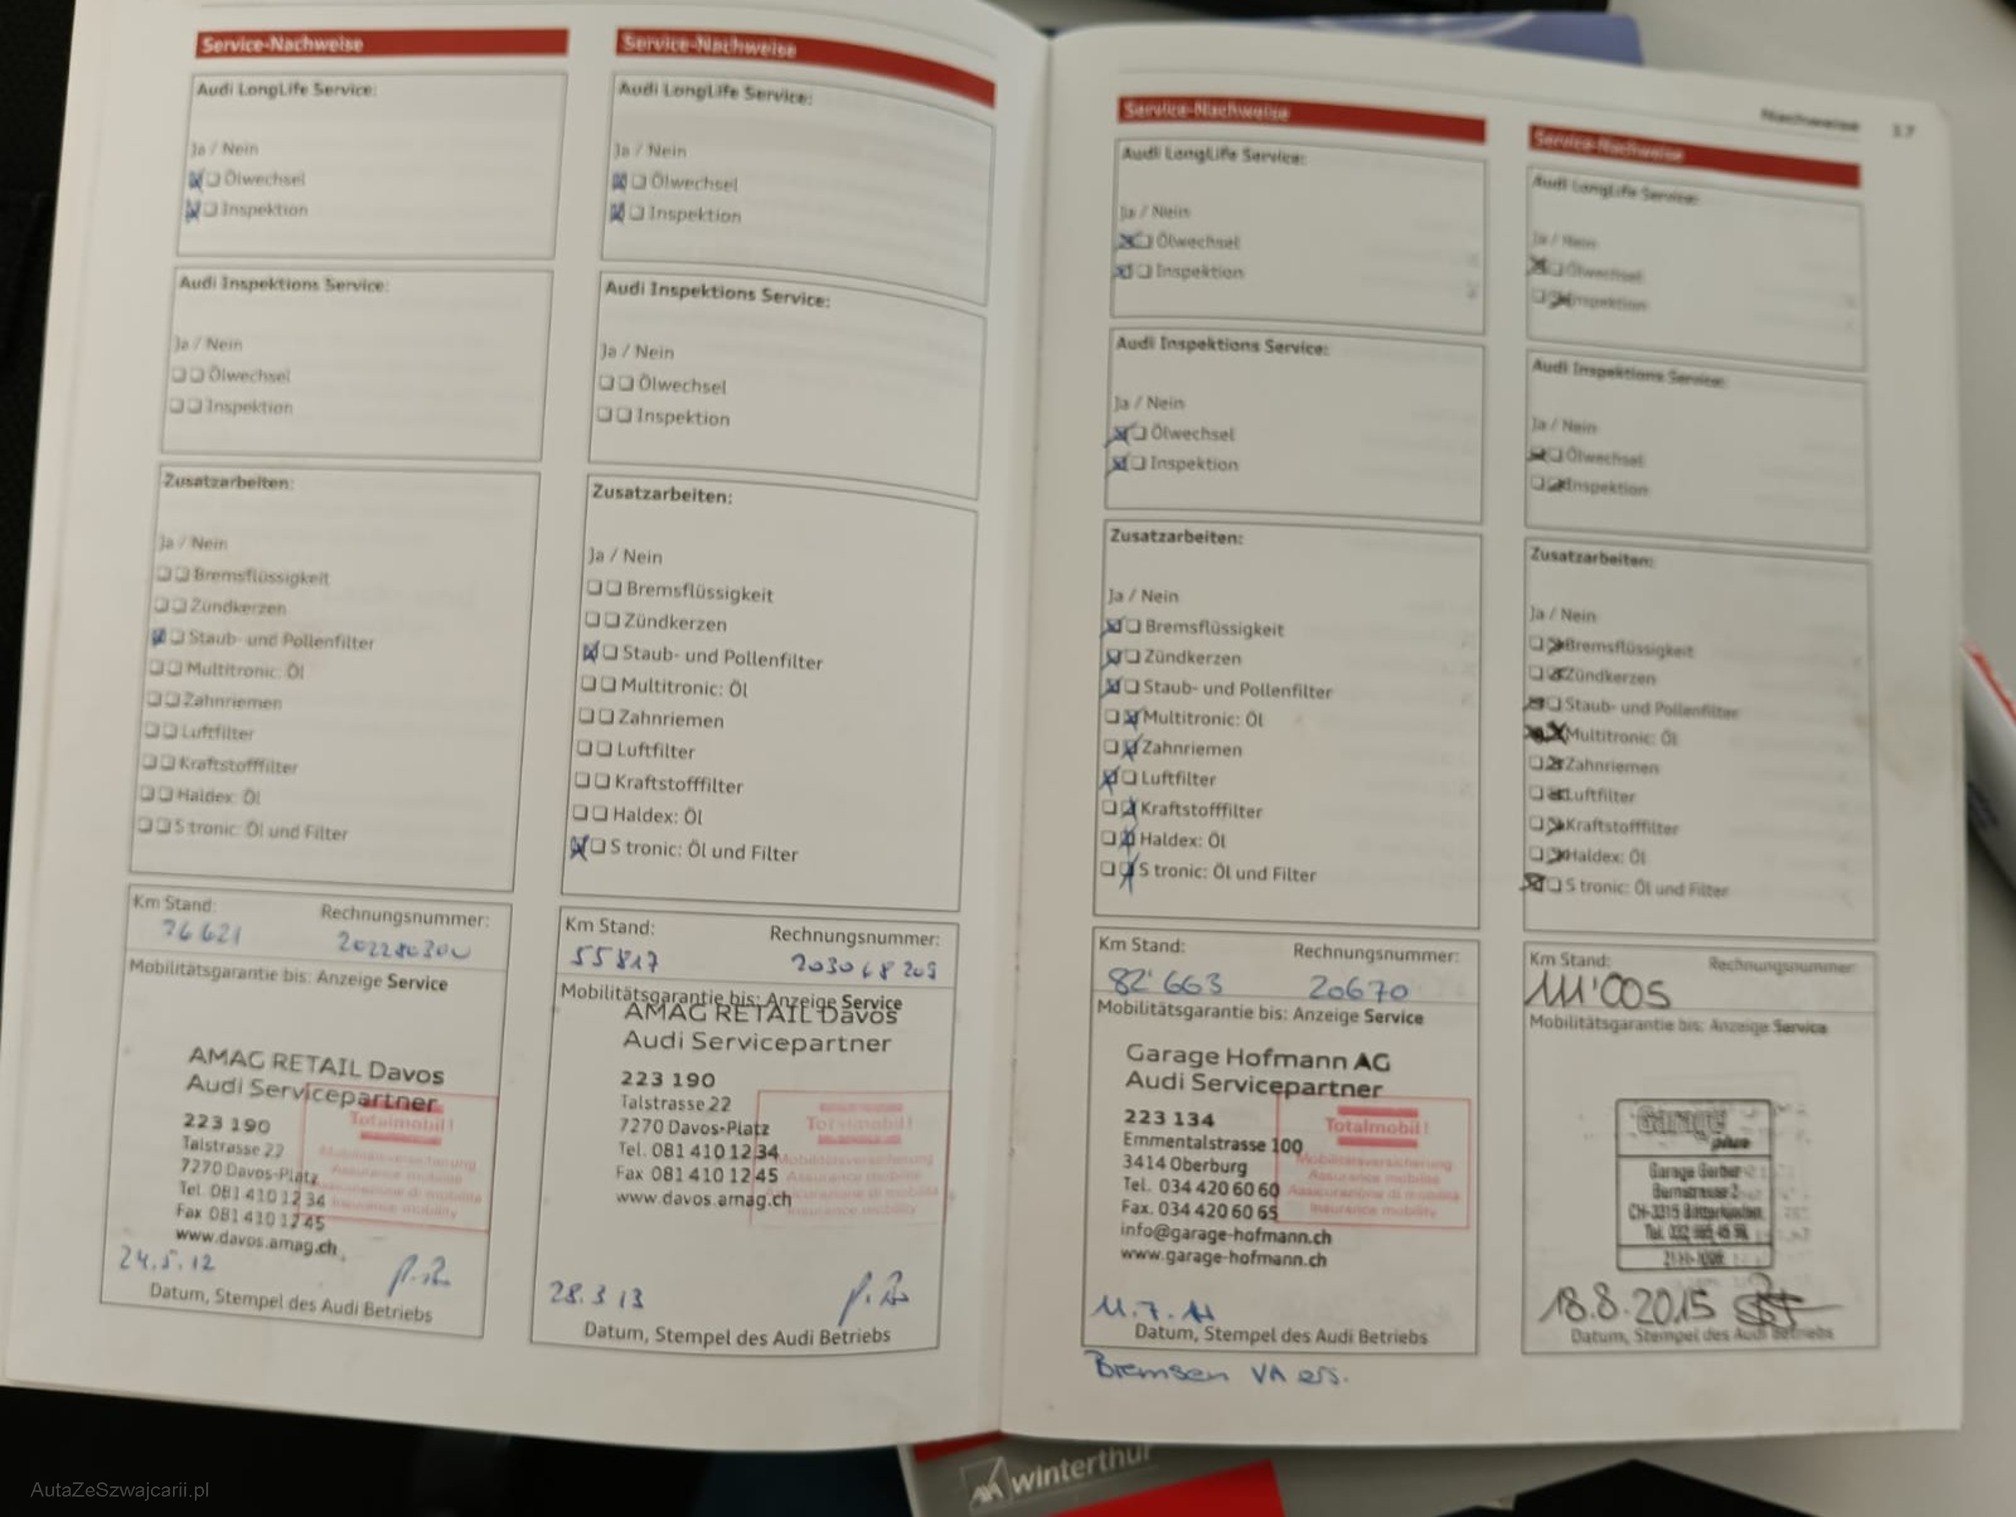 Service-Nachweise
Audi LongLife Service:
Ja / Nein
Ölwechsel
Inspektion
Audi Inspektions Service:
Ja / Nein
Ölwechsel
Inspektion
Zusatzarbeiten:
Ja / Nein
Bremsflüssigkeit
Zündkerzen
Staub- und Pollenfilter
Multitronic: Öl
Zahnriemen
Luftfilter
Kraftstofffilter
Haldex: Öl
S tronic: Öl und Filter
Km Stand: Rechnungsnummer:
26621 202280300
Mobilitätsgarantie bis: Anzeige Service
AMAG RETAIL Davos
Audi Servicepartner
223 190
Talstrasse 22
7270 Davos-Platz
Tel. 081 410 12 34
Fax 081 410 12 45
www.davos.amag.ch
Totalmobil!
Mobilitätsversicherung
Assurance mobilité
Assicurazione di mobilità
Insurance mobility
24.5.12
Datum, Stempel des Audi Betriebs
Service-Nachweise
Audi LongLife Service:
Ja / Nein
Ölwechsel
Inspektion
Audi Inspektions Service:
Ja / Nein
Ölwechsel
Inspektion
Zusatzarbeiten:
Ja / Nein
Bremsflüssigkeit
Zündkerzen
Staub- und Pollenfilter
Multitronic: Öl
Zahnriemen
Luftfilter
Kraftstofffilter
Haldex: Öl
S tronic: Öl und Filter
Km Stand: Rechnungsnummer:
55817 203068209
Mobilitätsgarantie bis: Anzeige Service
AMAG RETAIL Davos
Audi Servicepartner
223 190
Talstrasse 22
7270 Davos-Platz
Tel. 081 410 12 34
Fax 081 410 12 45
www.davos.amag.ch
Totalmobil!
Mobilitätsversicherung
Assurance mobilité
Assicurazione di mobilità
Insurance mobility
28.3 13
Datum, Stempel des Audi Betriebs
Service-Nachweise
Audi LongLife Service:
Ja / Nein
Ölwechsel
Inspektion
Audi Inspektions Service:
Ja / Nein
Ölwechsel
Inspektion
Zusatzarbeiten:
Ja / Nein
Bremsflüssigkeit
Zündkerzen
Staub- und Pollenfilter
Multitronic: Öl
Zahnriemen
Luftfilter
Kraftstofffilter
Haldex: Öl
S tronic: Öl und Filter
Km Stand: Rechnungsnummer:
82'663 20670
Mobilitätsgarantie bis: Anzeige Service
Garage Hofmann AG
Audi Servicepartner
223 134
Emmentalstrasse 100
3414 Oberburg
Tel. 034 420 60 60
Fax. 034 420 60 65
info@garage-hofmann.ch
www.garage-hofmann.ch
Totalmobil!
Mobilitätsversicherung
Assurance mobilité
Assicurazione di mobilità
Insurance mobility
11.7.14
Datum, Stempel des Audi Betriebs
Bremsen VA ers.
Nachweise 17
Service-Nachweise
Audi LongLife Service:
Ja / Nein
Ölwechsel
Inspektion
Audi Inspektions Service:
Ja / Nein
Ölwechsel
Inspektion
Zusatzarbeiten:
Ja / Nein
Bremsflüssigkeit
Zündkerzen
Staub- und Pollenfilter
Multitronic: Öl
Zahnriemen
Luftfilter
Kraftstofffilter
Haldex: Öl
S tronic: Öl und Filter
Km Stand: Rechnungsnummer:
111'005
Mobilitätsgarantie bis: Anzeige Service
Garage
plus
Garage Gerber
Bernstrasse 2
18.8.2015
Datum, Stempel des Audi Betriebs
winterthur
AutaZeSzwajcarii.pl